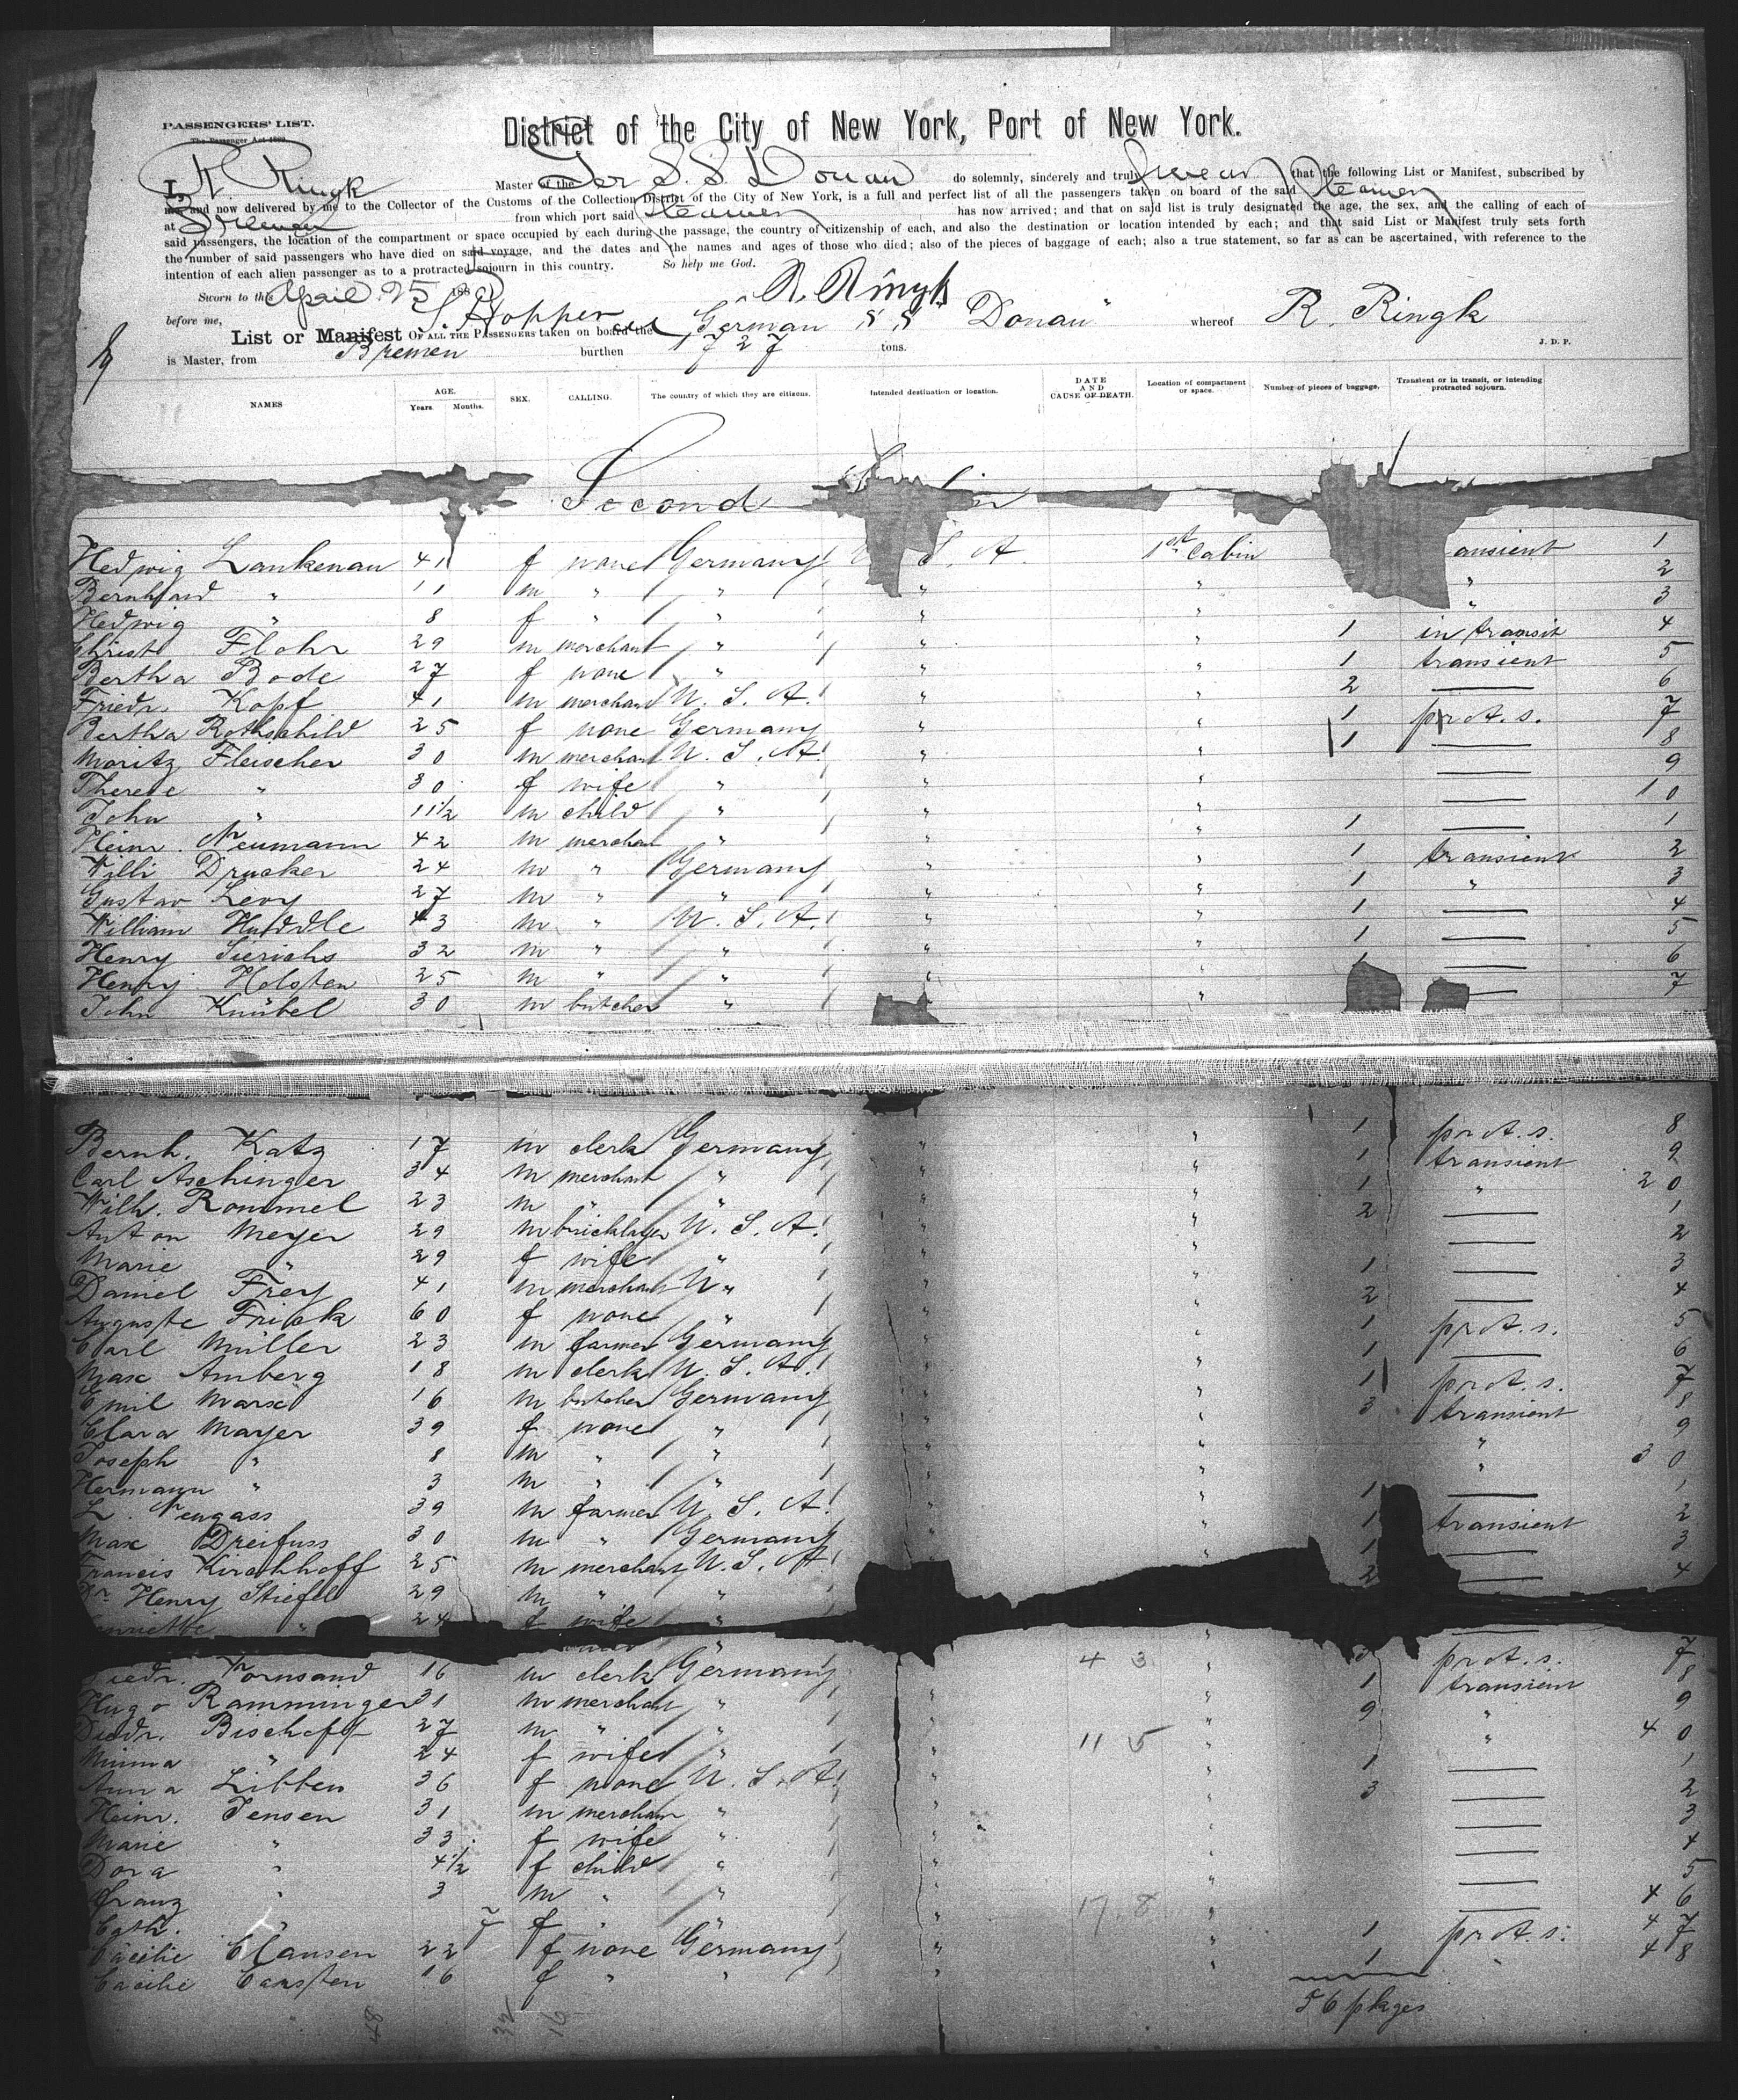 PASSENGERS' LIST.
The Passenger Act 1882
District of the City of New York, Port of New York.
I, R. Ringk Master of the Ger S. S. Donau do solemnly, sincerely and truly swear that the following List or Manifest, subscribed by
me, and now delivered by me to the Collector of the Customs of the Collection District of the City of New York, is a full and perfect list of all the passengers taken on board of the said Steamer
at Bremen from which port said Steamer has now arrived; and that on said list is truly designated the age, the sex, and the calling of each of
said passengers, the location of the compartment or space occupied by each during the passage, the country of citizenship of each, and also the destination or location intended by each; and that said List or Manifest truly sets forth
the number of said passengers who have died on said voyage, and the dates and the names and ages of those who died; also of the pieces of baggage of each; also a true statement, so far as can be ascertained, with reference to the
intention of each alien passenger as to a protracted sojourn in this country. So help me God.
Sworn to this April 25 188 R. Ringk
before me, S. Hopper
List or Manifest OF ALL THE PASSENGERS taken on board the German SS "Donau" whereof R. Ringk
is Master, from Bremen burthen 1727 tons. J. D. P.
NAMES AGE. Years. Months. SEX. CALLING. The country of which they are citizens. Intended destination or location. DATE AND CAUSE OF DEATH. Location of compartment or space. Number of pieces of baggage. Transient or in transit, or intending protracted sojourn.
Second
Hedwig Lankenau 41 f none Germany U. S. A. 1st Cabin ansient 1
Bernhard " 11 m " " " " " 2
Hedwig " 8 f " " " " " 3
Christ Flohr 29 m merchant " " " 1 in transit 4
Bertha Bode 27 f none " " " 1 transient 5
Friedr. Kopf 41 m merchant U. S. A. " " 2 — 6
Bertha Rothschild 25 f none Germany " " 1 prot. s. 7
Moritz Fleischer 30 m merchant U. S. A. " " 1 — 8
Therese " 30 f wife " " " — 9
John " 11 1/2 m child " " " — 10
Heinr. Neumann 42 m merchant " " " 1 — 1
Willi Drucker 24 m " Germany " " 1 transient 2
Gustav Levy 27 m " " " " 1 " 3
William Huddle 43 m " U. S. A. " " 1 — 4
Henry Sierichs 32 m " " " " 1 — 5
Henry Holsten 25 m " " " " 1 — 6
John Knübel 30 m butcher " " — 7
Bernh. Katz 17 m clerk Germany " " 1 prot. s. 8
Carl Aschinger 34 m merchant " " " 1 transient 9
Wilh. Rommel 23 m " " " " 1 " 20
Anton Meyer 29 m bricklayer U. S. A. " " 2 — 1
Marie " 29 f wife " " " — 2
Daniel Frey 41 m merchant U " " " 1 — 3
Auguste Frick 60 f none " " " 2 — 4
Carl Müller 23 m farmer Germany " " 1 prot. s. 5
Max Amberg 18 m clerk U. S. A. " " 1 — 6
Emil Marx 16 m butcher Germany " " 1 prot. s. 7
Clara Mayer 39 f none " " " 3 transient 8
Joseph " 8 m " " " " " 9
Hermann " 3 m " " " " " 30
L. Neugass 39 m farmer U. S. A. " " 1 — 1
Max Dreifuss 30 m " Germany " " 1 transient 2
Francis Kirchhoff 25 m merchant U. S. A. 1 — 3
Dr. Henry Stiefel 29 m " " 2 — 4
24 f wife "
Kornsand 16 m clerk Germany 4 3 " prot. s. 7
Hugo Ramminger 31 m merchant " " " 1 transient 8
Diedr. Bischoff 27 m " " " " 9 " 9
Minna " 24 f wife " " 11 5 " " 40
Anna Libben 36 f none U. S. A. " " 1 — 1
Heinr. Jensen 31 m merchant " " " 3 — 2
Marie " 33 f wife " " " — 3
Dora " 4 1/2 f child " " " — 4
Franz " 3 m " " " " — 5
Cath. " 7 f " " " 17.8 " — 46
Cäcilie Clausen 22 f none Germany " " 1 prot. s. 47
Cäcilie Carsten 16 f " " " " 1 " 48
56 pkges